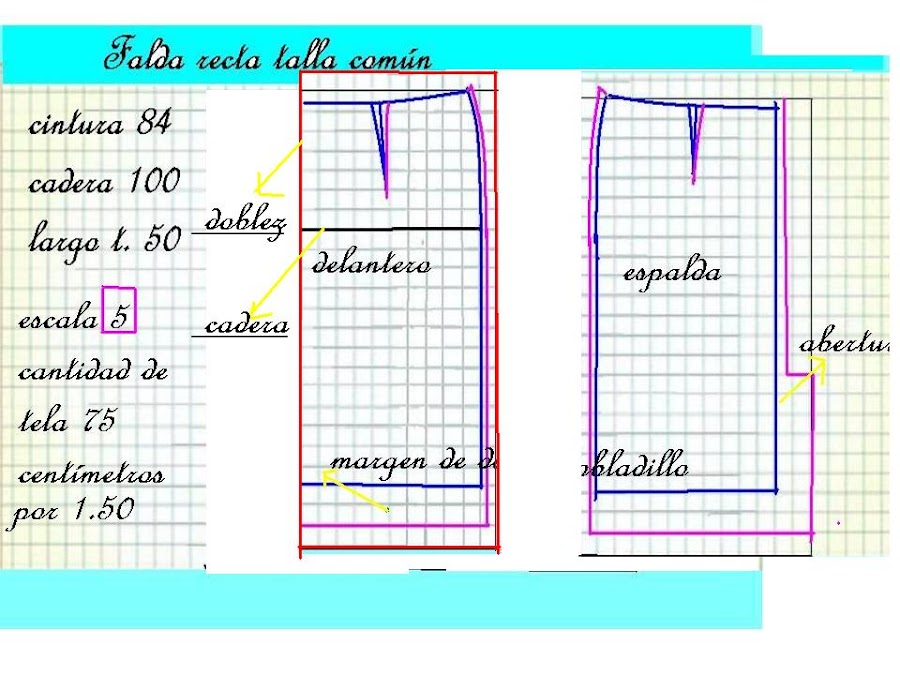 Falda recta talla común
cintura 84
cadera 100
largo t. 50
escala 5
cantidad de
tela 75
centímetros
por 1.50
doblez
cadera
delantero
margen de d
obladillo
espalda
abertu